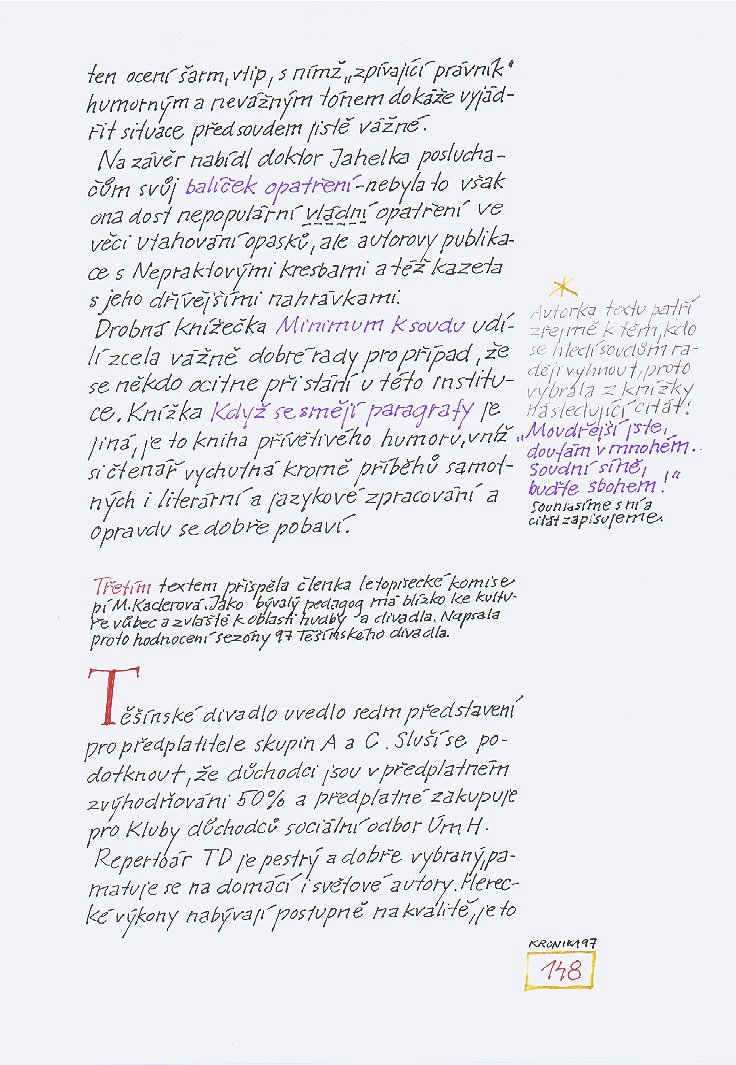 ten ocení šarm, vtip, s nímž „zpívající právník"
humorným a nevážným tónem dokáže vyjád-
řit situace před soudem jistě vážné.
Na závěr nabídl doktor Jahelka poslucha-
čům svůj balíček opatření - nebyla to však
ona dost nepopulární vládní opatření ve
věci utahování opasků, ale autorovy publika-
ce s Nepraktovými kresbami a též kazeta
s jeho dřívějšími nahrávkami.
Drobná knížečka Minimum k soudu udí-
lí zcela vážně dobré rady pro případ, že
se někdo ocitne při stání u této institu-
ce. Knížka Když se smějí paragrafy je
jiná, je to kniha přívětivého humoru, v níž
si čtenář vychutná kromě příběhů samot-
ných i literární a jazykové zpracování a
opravdu se dobře pobaví.
Autorka textu patří
zřejmě k těm, kdo
se hledí soudům ra-
ději vyhnout, proto
vybrala z knížky
následující citát:
„Moudřejší jste,
doufám v mnohém..
Soudní síně,
buďte sbohem!"
Souhlasíme s ní a
citát zapisujeme.
Třetím textem přispěla členka letopisecké komise
pí M. Kaderová. Jako bývalý pedagog má blízko ke kultu-
ře vůbec a zvláště k oblasti hudby a divadla. Napsala
proto hodnocení sezóny 97 Těšínského divadla.
Těšínské divadlo uvedlo sedm představení
pro předplatitele skupin A a C. Sluší se po-
dotknout, že důchodci jsou v předplatném
zvýhodňováni 50% a předplatné zakupuje
pro Kluby důchodců sociální odbor ÚmH.
Repertoár TD je pestrý a dobře vybraný, pa-
matuje se na domácí i světové autory. Herec-
ké výkony nabývají postupně na kvalitě, je to
KRONIKA 97
148